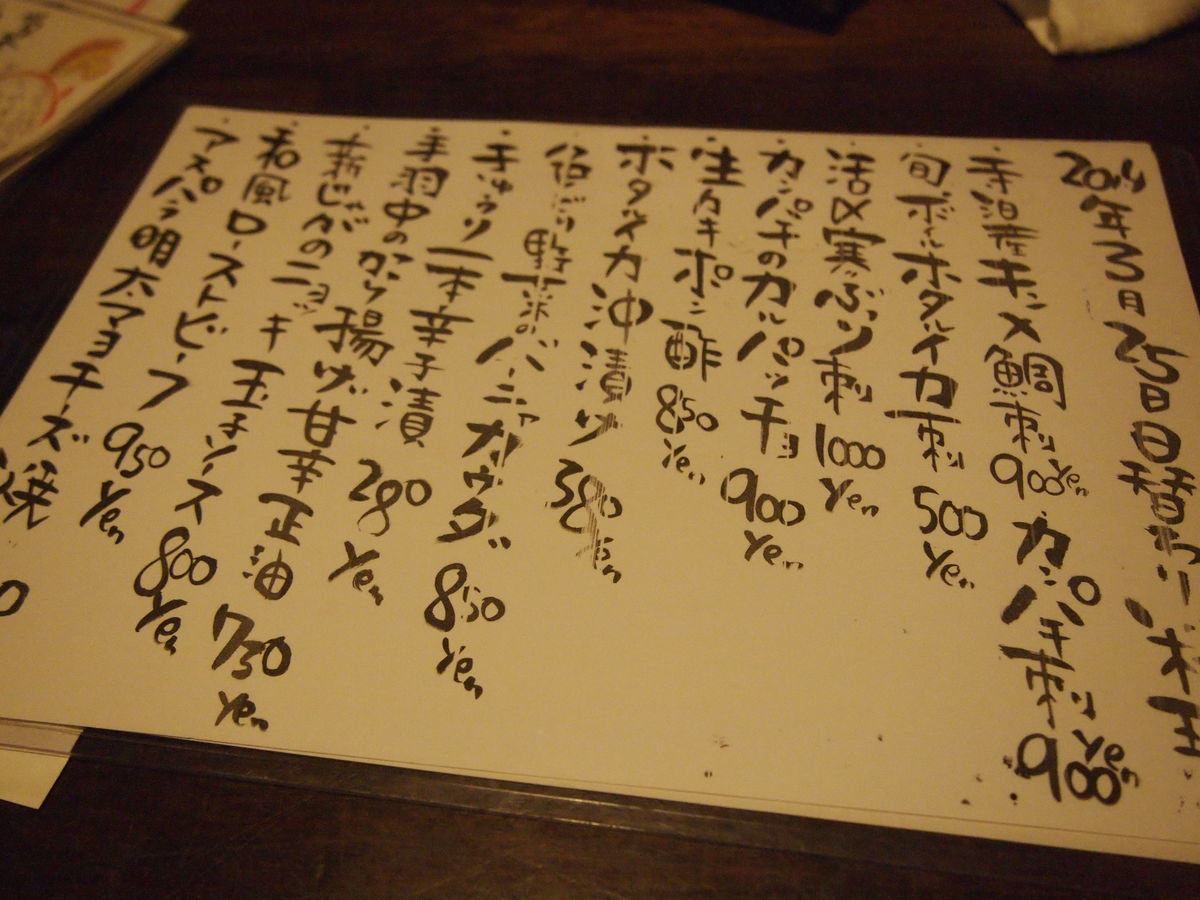 2014年3月25日日替わり
寺泊産キンメ鯛刺900yen カンパチ刺900yen
旬ボイルホタルイカ刺 500yen
活〆寒ぶり刺 1000yen
カンパチのカルパッチョ 900yen
生カキポン酢 850yen
ホタルイカ沖漬け 380yen
野菜のバーニャカウダ 850yen
きゅうり一本辛子漬 280yen
手羽中のから揚げ甘辛正油 750yen
新じゃがのニョッキ 玉子ソース 800yen
和風ローストビーフ 950yen
アスパラ明太マヨチーズ焼